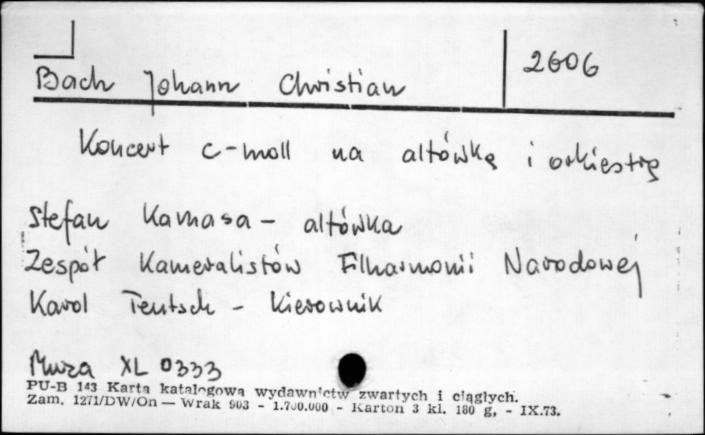 Bach Johann Christian 2606
Koncert c-moll na altówkę i orkiestrę
Stefan Kamasa - altówka
Zespół Kameralistów Filharmonii Narodowej
Karol Teutsch - kierownik
Muza XL 0333
PU-B 143 Karta katalogowa wydawnictw zwartych i ciągłych.
Zam. 1271/DW/On — Wrak 903 - 1.700.000 - Karton 3 kl. 180 g, - IX.73.